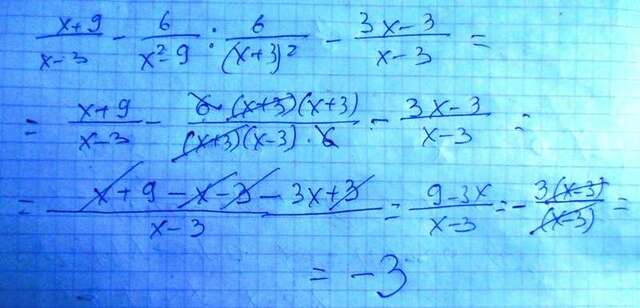 (x+9)/(x-3) - 6/(x²-9) : 6/(x+3)² - (3x-3)/(x-3) =
= (x+9)/(x-3) - (6·(x+3)(x+3))/((x+3)(x-3)·6) - (3x-3)/(x-3) =
= (x+9-x-3-3x+3)/(x-3) = (9-3x)/(x-3) = -(3(x-3))/((x-3)) =
= -3